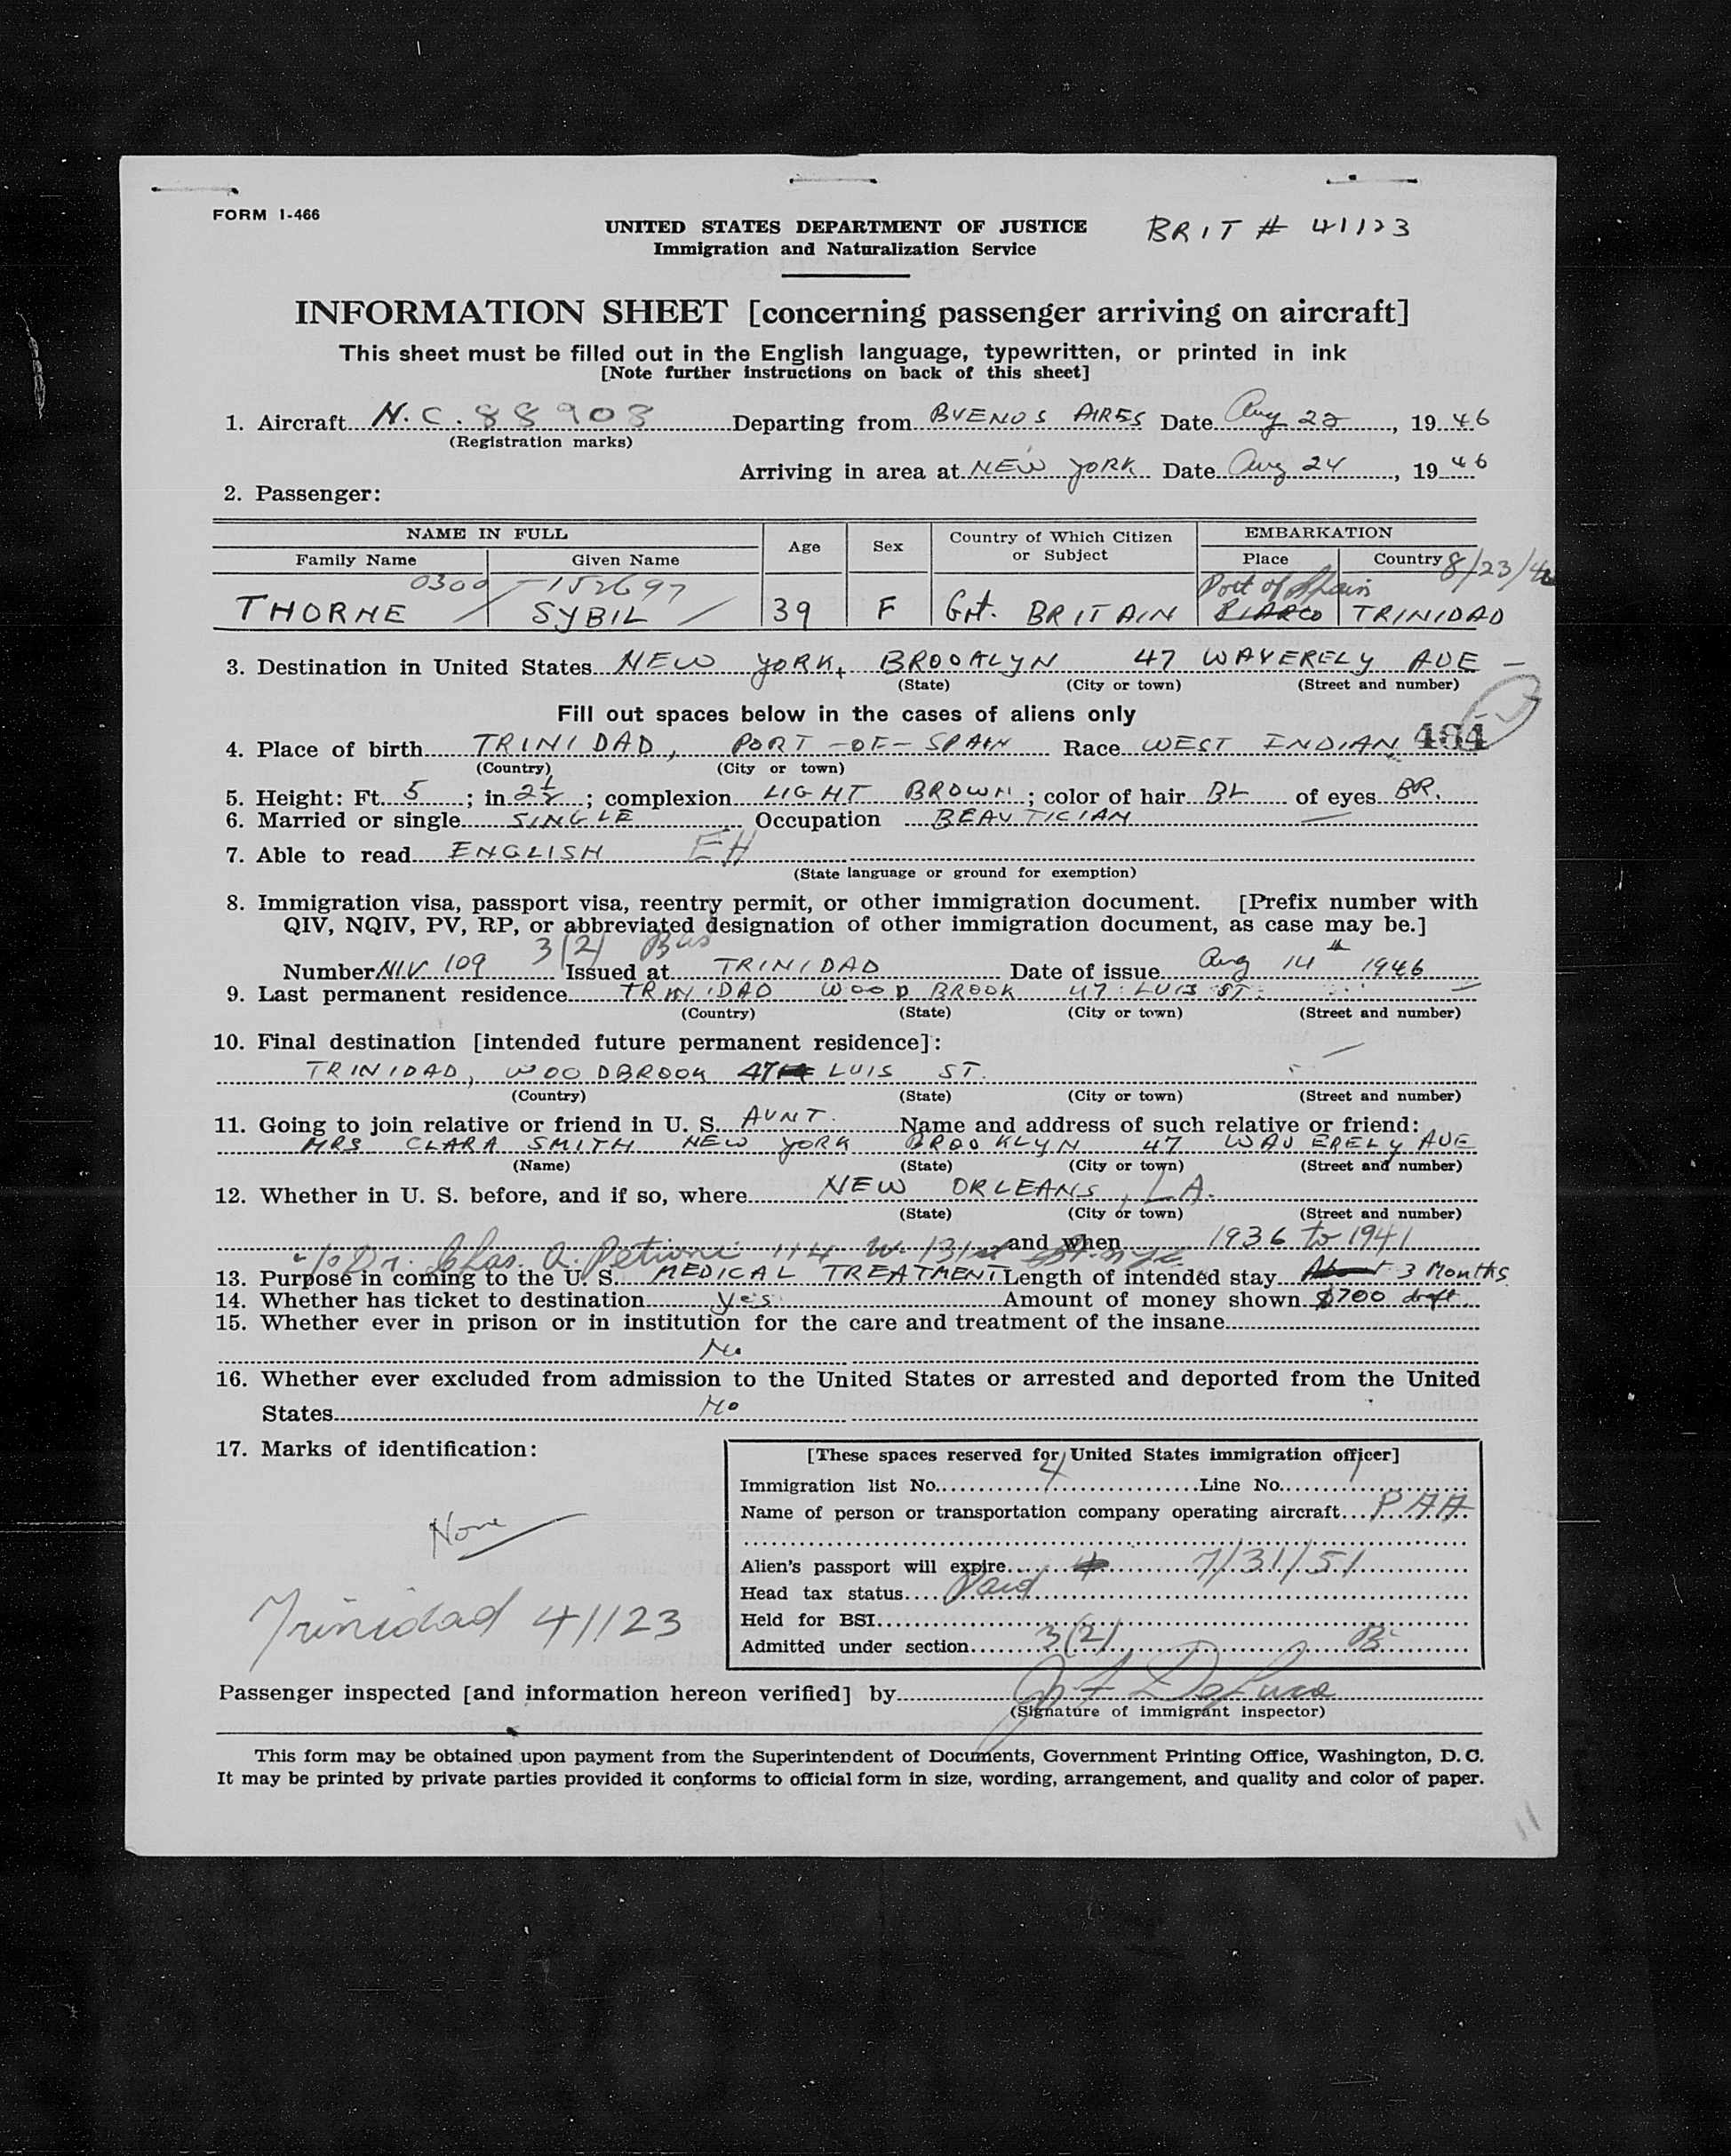 FORM I-466
UNITED STATES DEPARTMENT OF JUSTICE
BRIT # 41123
Immigration and Naturalization Service
INFORMATION SHEET [concerning passenger arriving on aircraft]
This sheet must be filled out in the English language, typewritten, or printed in ink
[Note further instructions on back of this sheet]
1. Aircraft N.C. 88908 Departing from BUENOS AIRES Date Aug 22, 1946
(Registration marks)
Arriving in area at NEW YORK Date Aug 24, 1946
2. Passenger:
NAME IN FULL Age Sex Country of Which Citizen or Subject EMBARKATION
Family Name Given Name Place Country
0300 - 152697 Port of Spain 8/23/46
THORNE SYBIL 39 F Grt. BRITAIN PIARCO TRINIDAD
3. Destination in United States NEW YORK, BROOKLYN 47 WAVERELY AVE
(State) (City or town) (Street and number)
Fill out spaces below in the cases of aliens only
4. Place of birth TRINIDAD, PORT-OF-SPAIN Race WEST INDIAN 484
(Country) (City or town)
5. Height: Ft. 5; in 2½; complexion LIGHT BROWN; color of hair BL of eyes BR.
6. Married or single SINGLE Occupation BEAUTICIAN
7. Able to read ENGLISH EH
(State language or ground for exemption)
8. Immigration visa, passport visa, reentry permit, or other immigration document. [Prefix number with
QIV, NQIV, PV, RP, or abbreviated designation of other immigration document, as case may be.]
3(2) Bus
Number NIV 109 Issued at TRINIDAD Date of issue Aug 14th 1946
9. Last permanent residence TRINIDAD WOODBROOK 47 LUIS ST.
(Country) (State) (City or town) (Street and number)
10. Final destination [intended future permanent residence]:
TRINIDAD, WOODBROOK 47 LUIS ST.
(Country) (State) (City or town) (Street and number)
11. Going to join relative or friend in U. S. AUNT. Name and address of such relative or friend:
MRS CLARA SMITH NEW YORK BROOKLYN 47 WAVERELY AVE
(Name) (State) (City or town) (Street and number)
12. Whether in U. S. before, and if so, where NEW ORLEANS, LA.
(State) (City or town) (Street and number)
and when 1936 to 1941
c/o Dr. Chas. A. Petioni 114 W. 131st St. nyc
13. Purpose in coming to the U. S. MEDICAL TREATMENT Length of intended stay About 3 Months
14. Whether has ticket to destination Yes Amount of money shown $700 draft
15. Whether ever in prison or in institution for the care and treatment of the insane
No
16. Whether ever excluded from admission to the United States or arrested and deported from the United
States No
17. Marks of identification:
None
Trinidad 41123
[These spaces reserved for United States immigration officer]
Immigration list No. 4 Line No. 1
Name of person or transportation company operating aircraft PAA
Alien's passport will expire 7/31/51
Head tax status Paid
Held for BSI
Admitted under section 3(2) B
Passenger inspected [and information hereon verified] by
(Signature of immigrant inspector)
This form may be obtained upon payment from the Superintendent of Documents, Government Printing Office, Washington, D. C.
It may be printed by private parties provided it conforms to official form in size, wording, arrangement, and quality and color of paper.
11